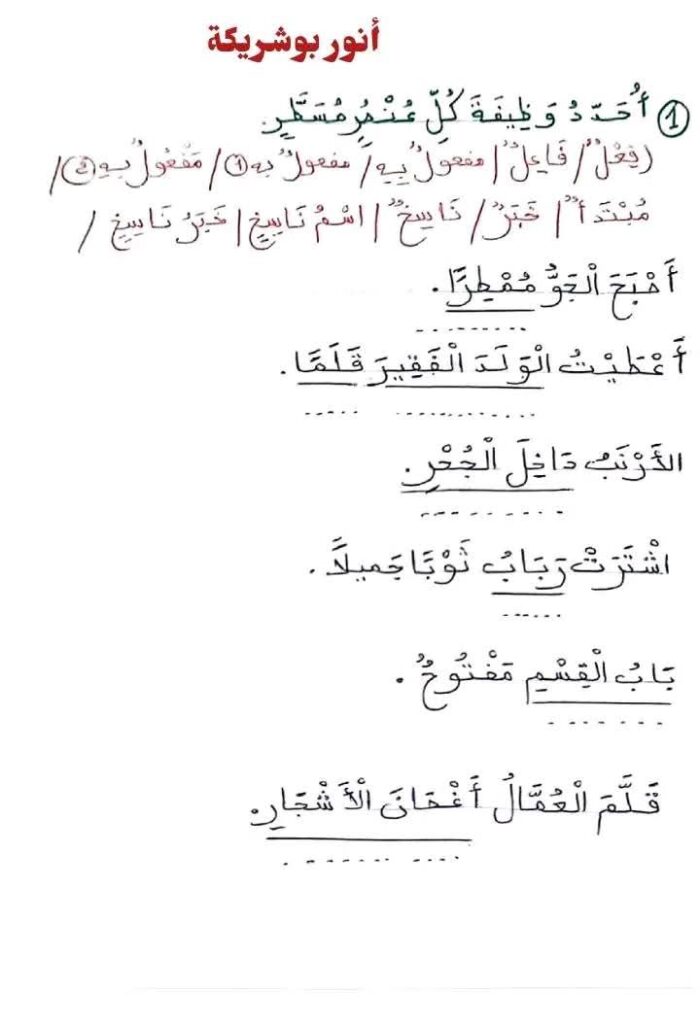 أنور بوشريكة
① أُحَدِّدُ وَظِيفَةَ كُلِّ عُنْصُرٍ مُسَطَّرٍ.
(فِعْلٌ / فَاعِلٌ / مفعولٌ بِهِ / مفعولٌ به ① / مَفْعُولٌ بِهِ ② /
مُبْتَدَأٌ / خَبَرٌ / نَاسِخٌ / اسْمُ نَاسِخٍ / خَبَرُ نَاسِخٍ /
أَصْبَحَ الْجَوُّ مُمْطِرًا.
أَعْطَيْتُ الْوَلَدَ الْفَقِيرَ قَلَمًا.
الأَرْنَبُ دَاخِلَ الْجُحْرِ.
اشْتَرَتْ رَبَابُ ثَوْبًا جَمِيلاً.
بَابُ الْقِسْمِ مَفْتُوحٌ.
قَلَّمَ الْعُمَّالُ أَغْصَانَ الْأَشْجَارِ.